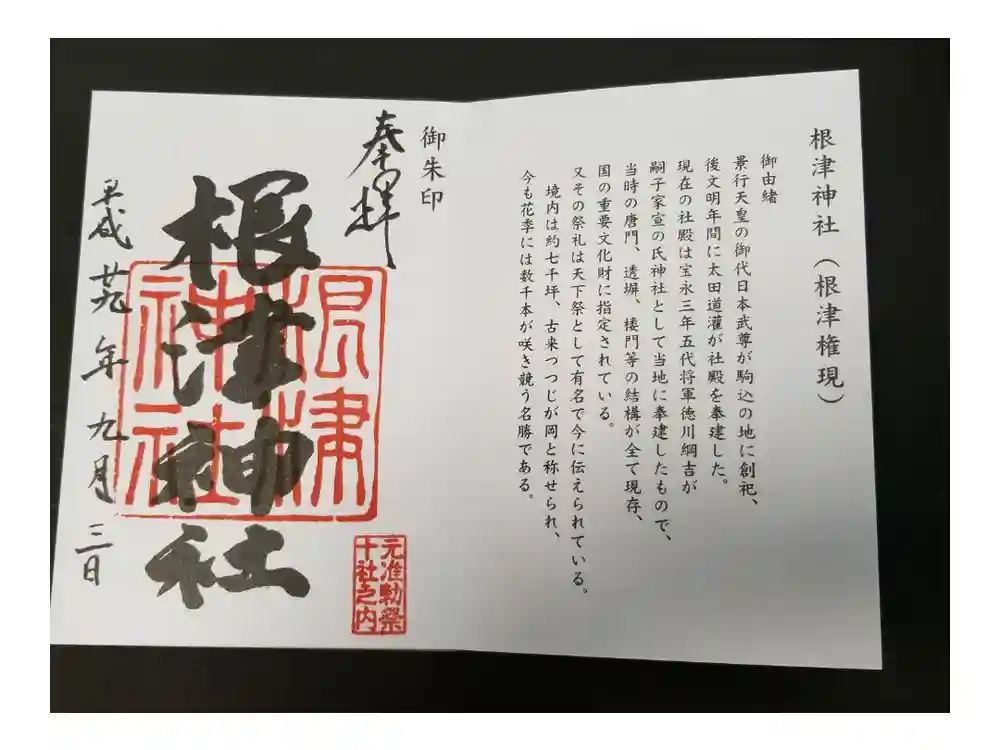 根津神社（根津権現）
御由緒
景行天皇の御代日本武尊が駒込の地に創祀、
後文明年間に太田道灌が社殿を奉建した。
現在の社殿は宝永三年五代将軍徳川綱吉が
嗣子家宣の氏神社として当地に奉建したもので、
当時の唐門、透塀、楼門等の結構が全て現存、
国の重要文化財に指定されている。
又その祭礼は天下祭として有名で今に伝えられている。
境内は約七千坪、古来つつじが岡と称せられ、
今も花季には数千本が咲き競う名勝である。
御朱印
奉拝
根津神社
根津
神社
元准勅祭
十社之内
平成廿九年九月三日